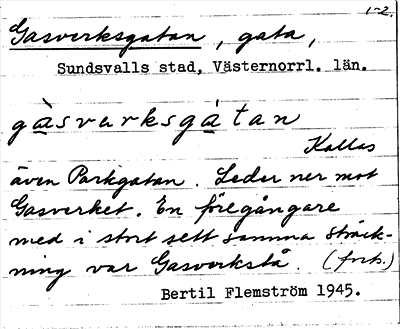 1-2.
Gasverksgatan, gata,
Sundsvalls stad, Västernorrl. län.
gàsvärksgátan
Kallas
även Parkgatan. Leder ner mot
Gasverket. En föregångare
med i stort sett samma sträck-
ning var Gasverkstå. (forts.)
Bertil Flemström 1945.